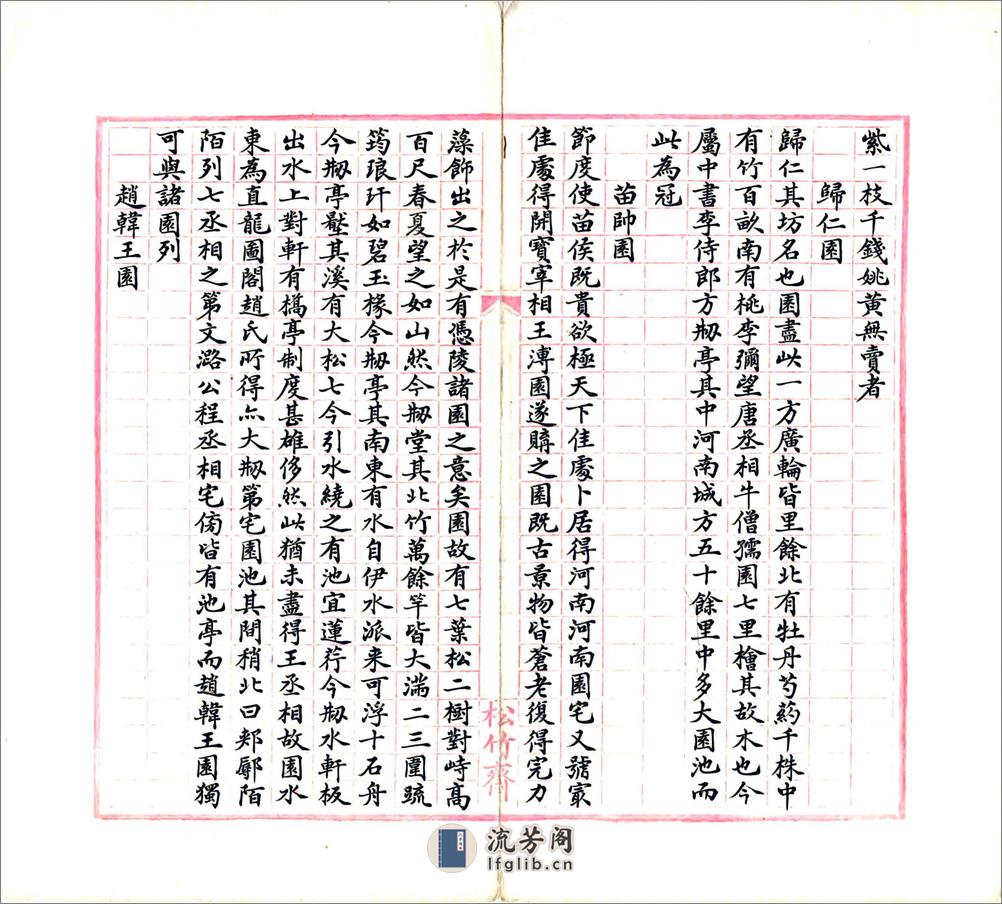 紫一枝千錢姚黃無賣者
歸仁園
歸仁其坊名也園盡此一方廣輪皆里餘北有牡丹芍藥千株中
有竹百畝南有桃李彌望唐丞相牛僧孺園七里檜其故木也今
屬中書李侍郎方剏亭其中河南城方五十餘里中多大園池而
此為冠
苗帥園
節度使苗侯既貴欲極天下佳處卜居得河南河南園宅又號㝡
佳處得開寶宰相王溥園遂購之園既古景物皆蒼老復得完力
藻飾出之於是有憑陵諸園之意矣園故有七葉松二樹對峙高
百尺春夏望之如山然今剏堂其北竹萬餘竿皆大滿二三圍疏
筠琅玕如碧玉椽今剏亭其南東有水自伊水派来可浮十石舟
今剏亭壓其溪有大松七今引水繞之有池宜蓮荇今剏水軒板
出水上對軒有橋亭制度甚雄侈然此猶未盡得王丞相故園水
東為直龍圖閣趙氏所得亦大剏第宅園池其間稍北曰郟鄏陌
陌列七丞相之第文潞公程丞相宅傍皆有池亭而趙韓王園獨
可與諸園列
趙韓王園
松竹齋
流芳阁
lfglib.cn